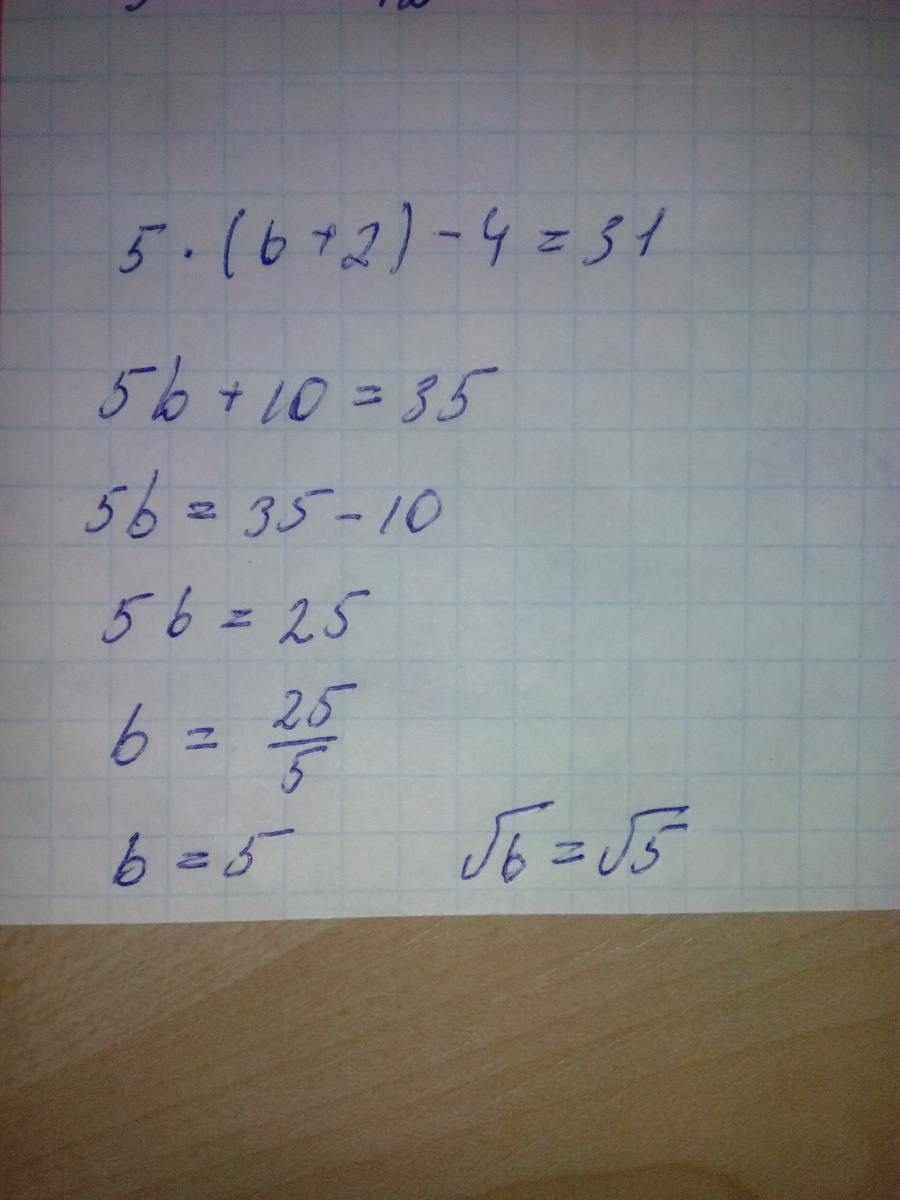 5 · (b + 2) - 4 = 31
5b + 10 = 35
5b = 35 - 10
5b = 25
b = 25/5
b = 5 √b = √5